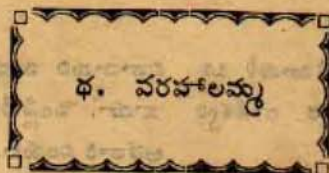 థ. వరహాలమ్మ